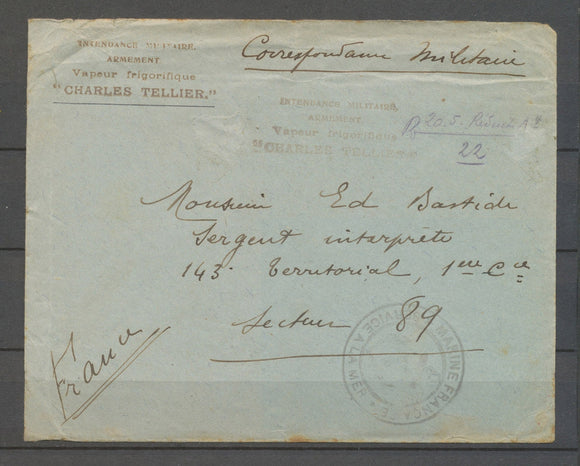 INTENDANCE MILITAIRE.
ARMEMENT
Vapeur frigorifique
"CHARLES TELLIER."
Correspondance Militaire
INTENDANCE MILITAIRE.
ARMEMENT.
Vapeur frigorifique
"CHARLES TELLIER."
20.5.
22
Monsieur Ed Bastide
Sergent interprète
143e Territorial, 1ère Cie
Secteur 89
France
MARINE FRANÇAISE
SERVICE A LA MER